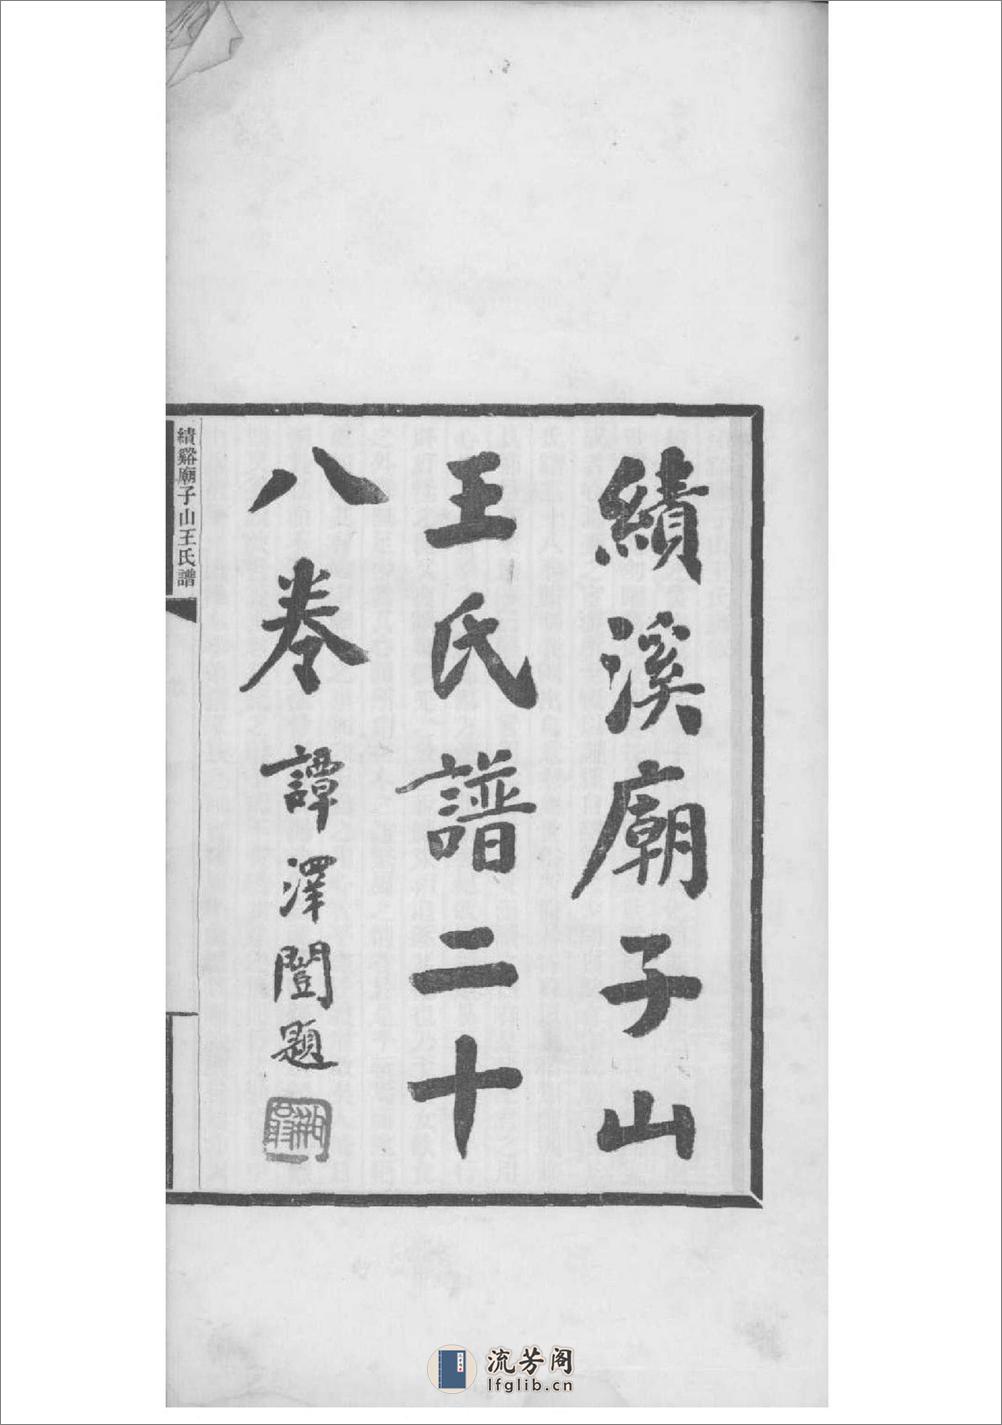 績溪廟子山
王氏譜二十
八卷
譚澤闓題
績谿廟子山王氏譜
流芳阁
lfglib.cn